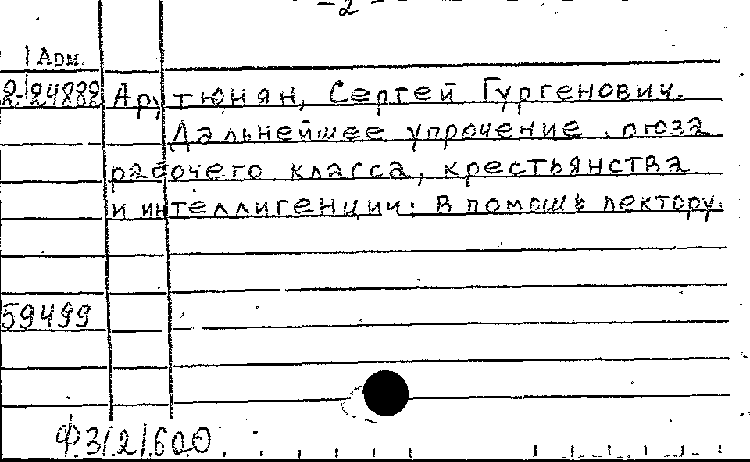 -2-
Арм.
2-24882 Арутюнян, Сергей Гургенович.
Дальнейшее упрочение союза
рабочего класса, крестьянства
и интеллигенции: В помощь лектору.
59499
Ф3/2/600